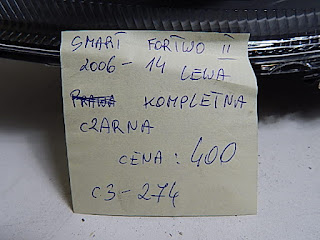 SMART FORTWO II
2006-14 LEWA
PRAWA KOMPLETNA
CZARNA
CENA: 400
C3-274